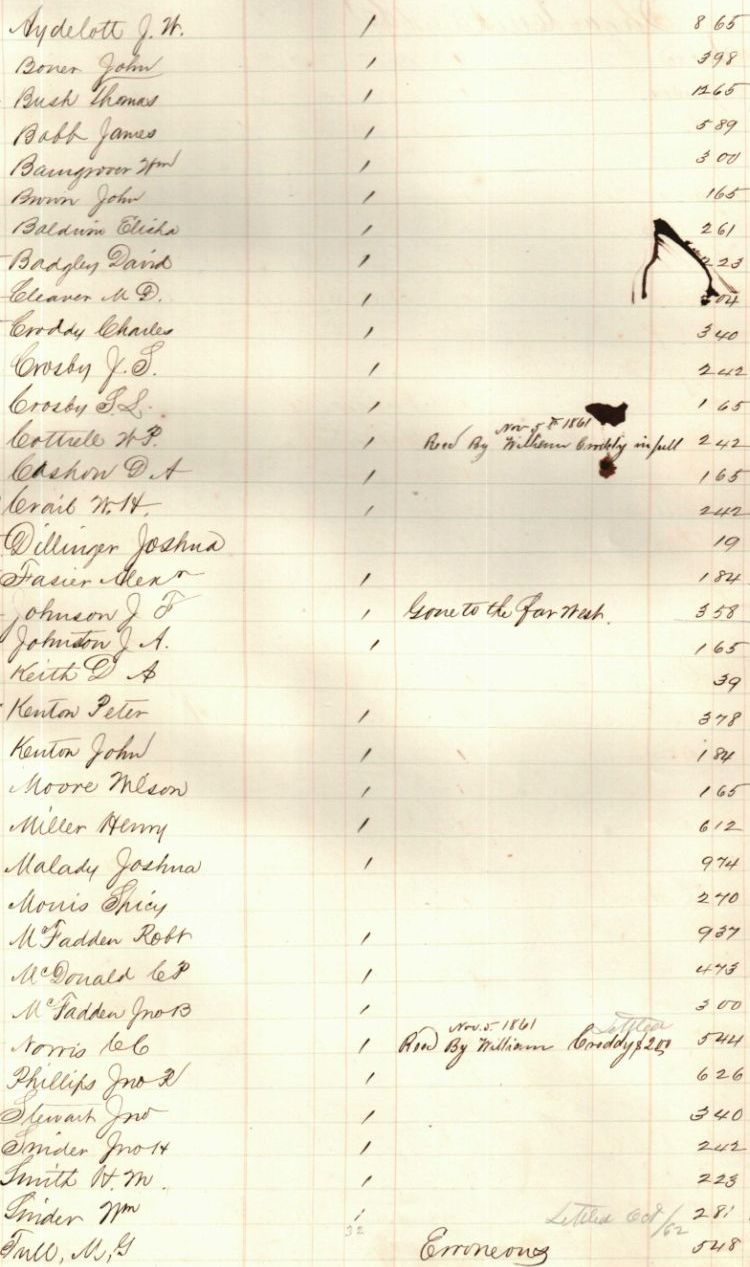 Aydelott J. W. 1 865
Boner John 1 398
Bush Thomas 1 1265
Bobb James 1 589
Bamgrover Wm 1 300
Brown John 1 165
Baldwin Elisha 1 261
Badgley David 1 223
Cleaver M D. 1 04
Croddy Charles 1 340
Crosby J. S. 1 242
Crosby S L. 1 165
Nov 5th 1861
Cottrell W P. 1 Recd By William Croddy in full 242
Cashon D A 1 165
Crail W. H. 1 242
Dillinger Joshua 19
Fasier Alexr 1 184
Johnson J F 1 Gone to the far West. 358
Johnston J A. 1 165
Keith D A 39
Kenton Peter 1 378
Kenton John 1 184
Moore Wilson 1 165
Miller Henry 1 612
Malady Joshua 1 974
Morris Spicy 270
McFadden Robt 1 937
McDonald C P 1 473
McFadden Jno B 1 300
Nov. 5. 1861 Settled
Norris C C 1 Recd By William Croddy $2.00 544
Phillips Jno R 1 626
Stewart Jno 1 340
Snider Jno H 1 242
Smith H M. 1 223
Snider Wm 1 Settled Oct/62 281
32
Tull, M, G Erroneous 548